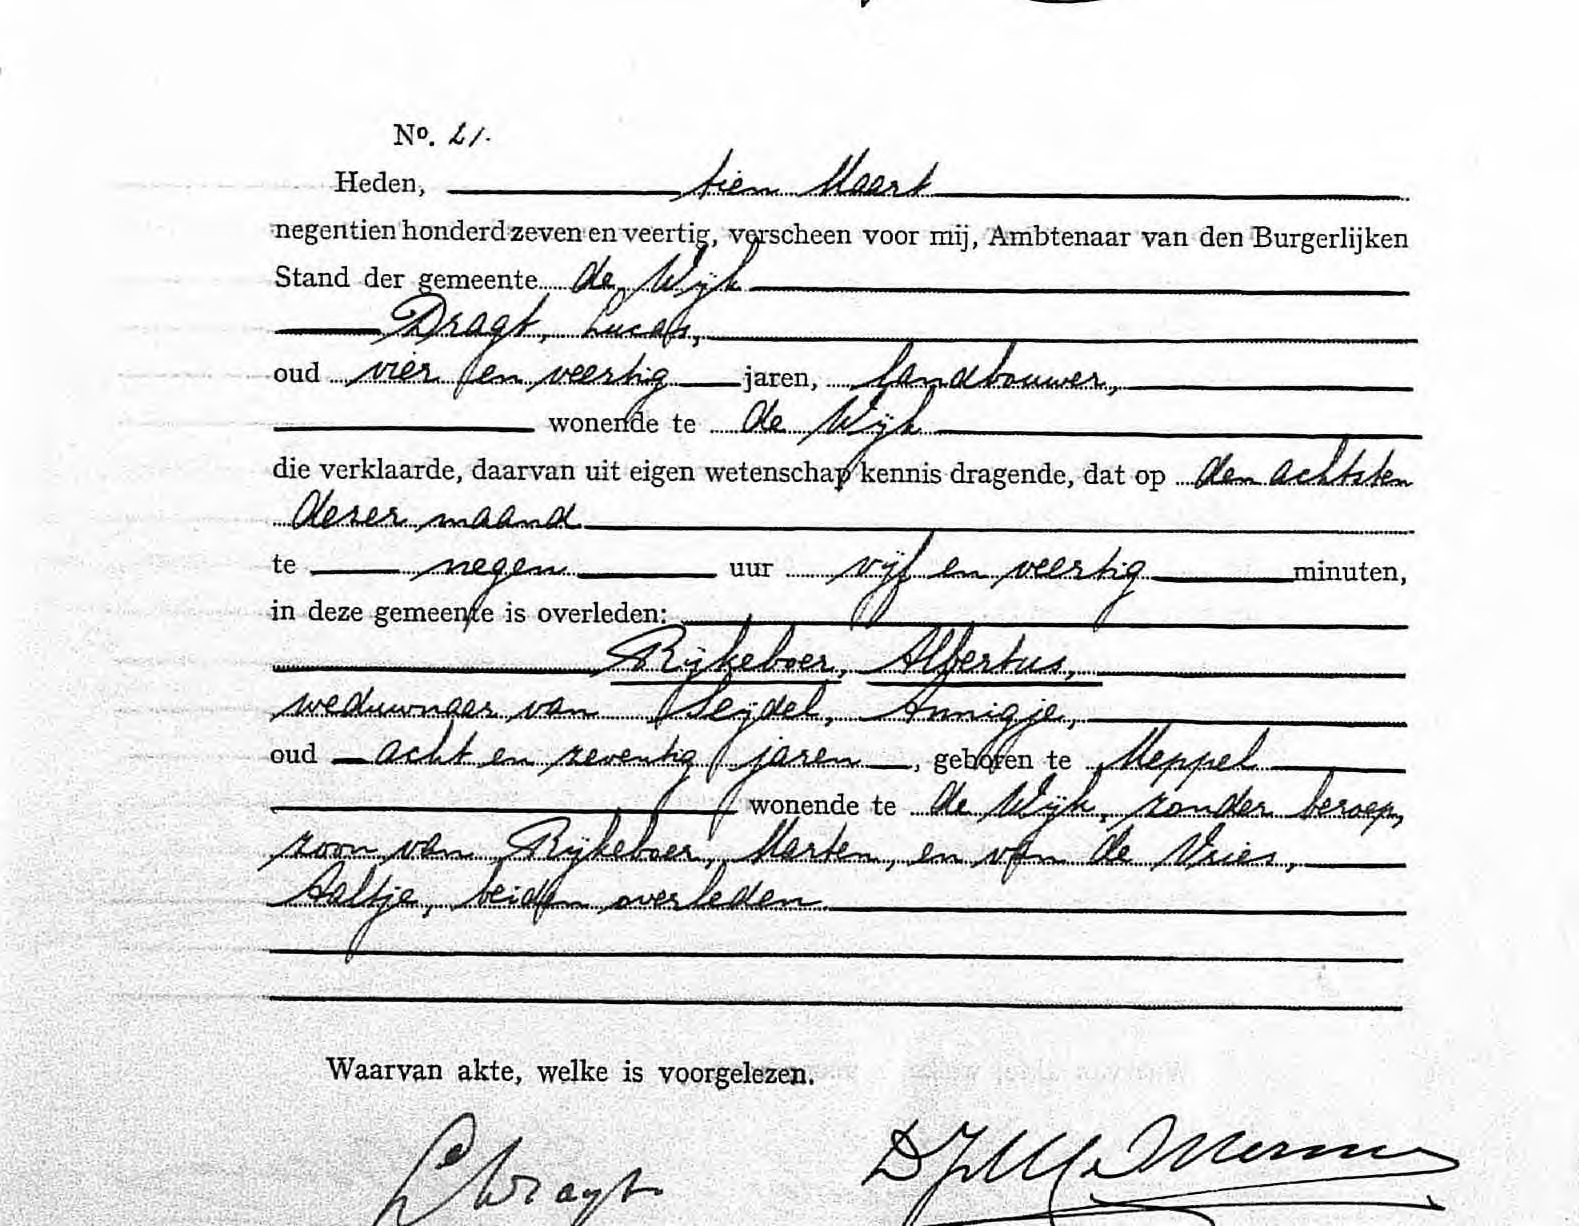 No. 21.
Heden, tien Maart
negentien honderd zeven en veertig, verscheen voor mij, Ambtenaar van den Burgerlijken
Stand der gemeente de Wijk
Dragt, Lucas,
oud vier en veertig jaren, landbouwer,
wonende te de Wijk
die verklaarde, daarvan uit eigen wetenschap kennis dragende, dat op den achtsten
dezer maand
te negen uur vijf en veertig minuten,
in deze gemeente is overleden:
Rijkeboer, Albertus,
weduwnaar van Seijdel, Annigje,
oud acht en zeventig jaren, geboren te Meppel
wonende te de Wijk, zonder beroep,
zoon van Rijkeboer, Marten, en van de Vries,
Aaltje, beiden overleden.
Waarvan akte, welke is voorgelezen.
L Dragt